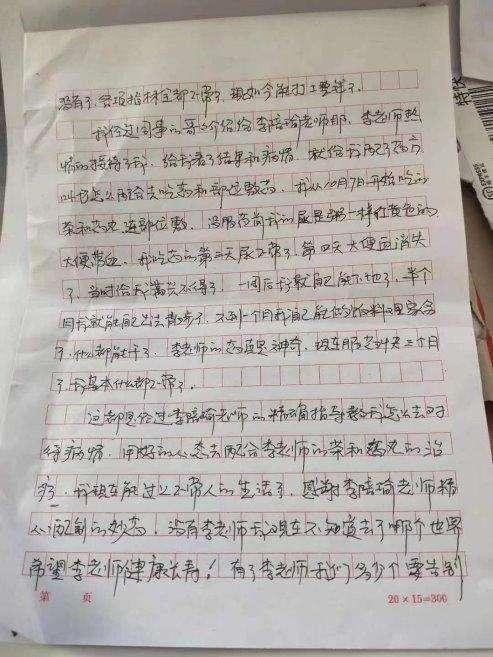 没有了，各项指标全都正常了，现如今能打工赚钱了。
我经过同事的哥哥介绍给李培瑜老师那，李老师热
情的接待了我，给我看了结果和病情，就给我配了药方
叫我怎么配合去吃药和部位敷药，我从10月7日开始吃的
茶和药丸 连部位敷，没服药前我的尿是粥一样红黄色的
大便带血，我吃药的第三天尿正常了，第四天大便血消失
了，当时给我高兴不得了，一周后我就自己能下地了，半个
月我就能自己出去散步了，不到一个月我自己能做饭料理家务
了，什么都能干了，李老师的药真是神奇，现在服药快三个月
了我基本什么都正常了。
这都是经过李培瑜老师的精确指导教我怎么去对
待病情，用好的心态去配合李老师的茶和药丸的治
疗，我现在能过上正常人的生活了，感谢李培瑜老师精
心配制的妙药，没有李老师我现在不知道去了哪个世界
希望李老师健康长寿！有了李老师我们多少个要告别
第 页
20×15=300